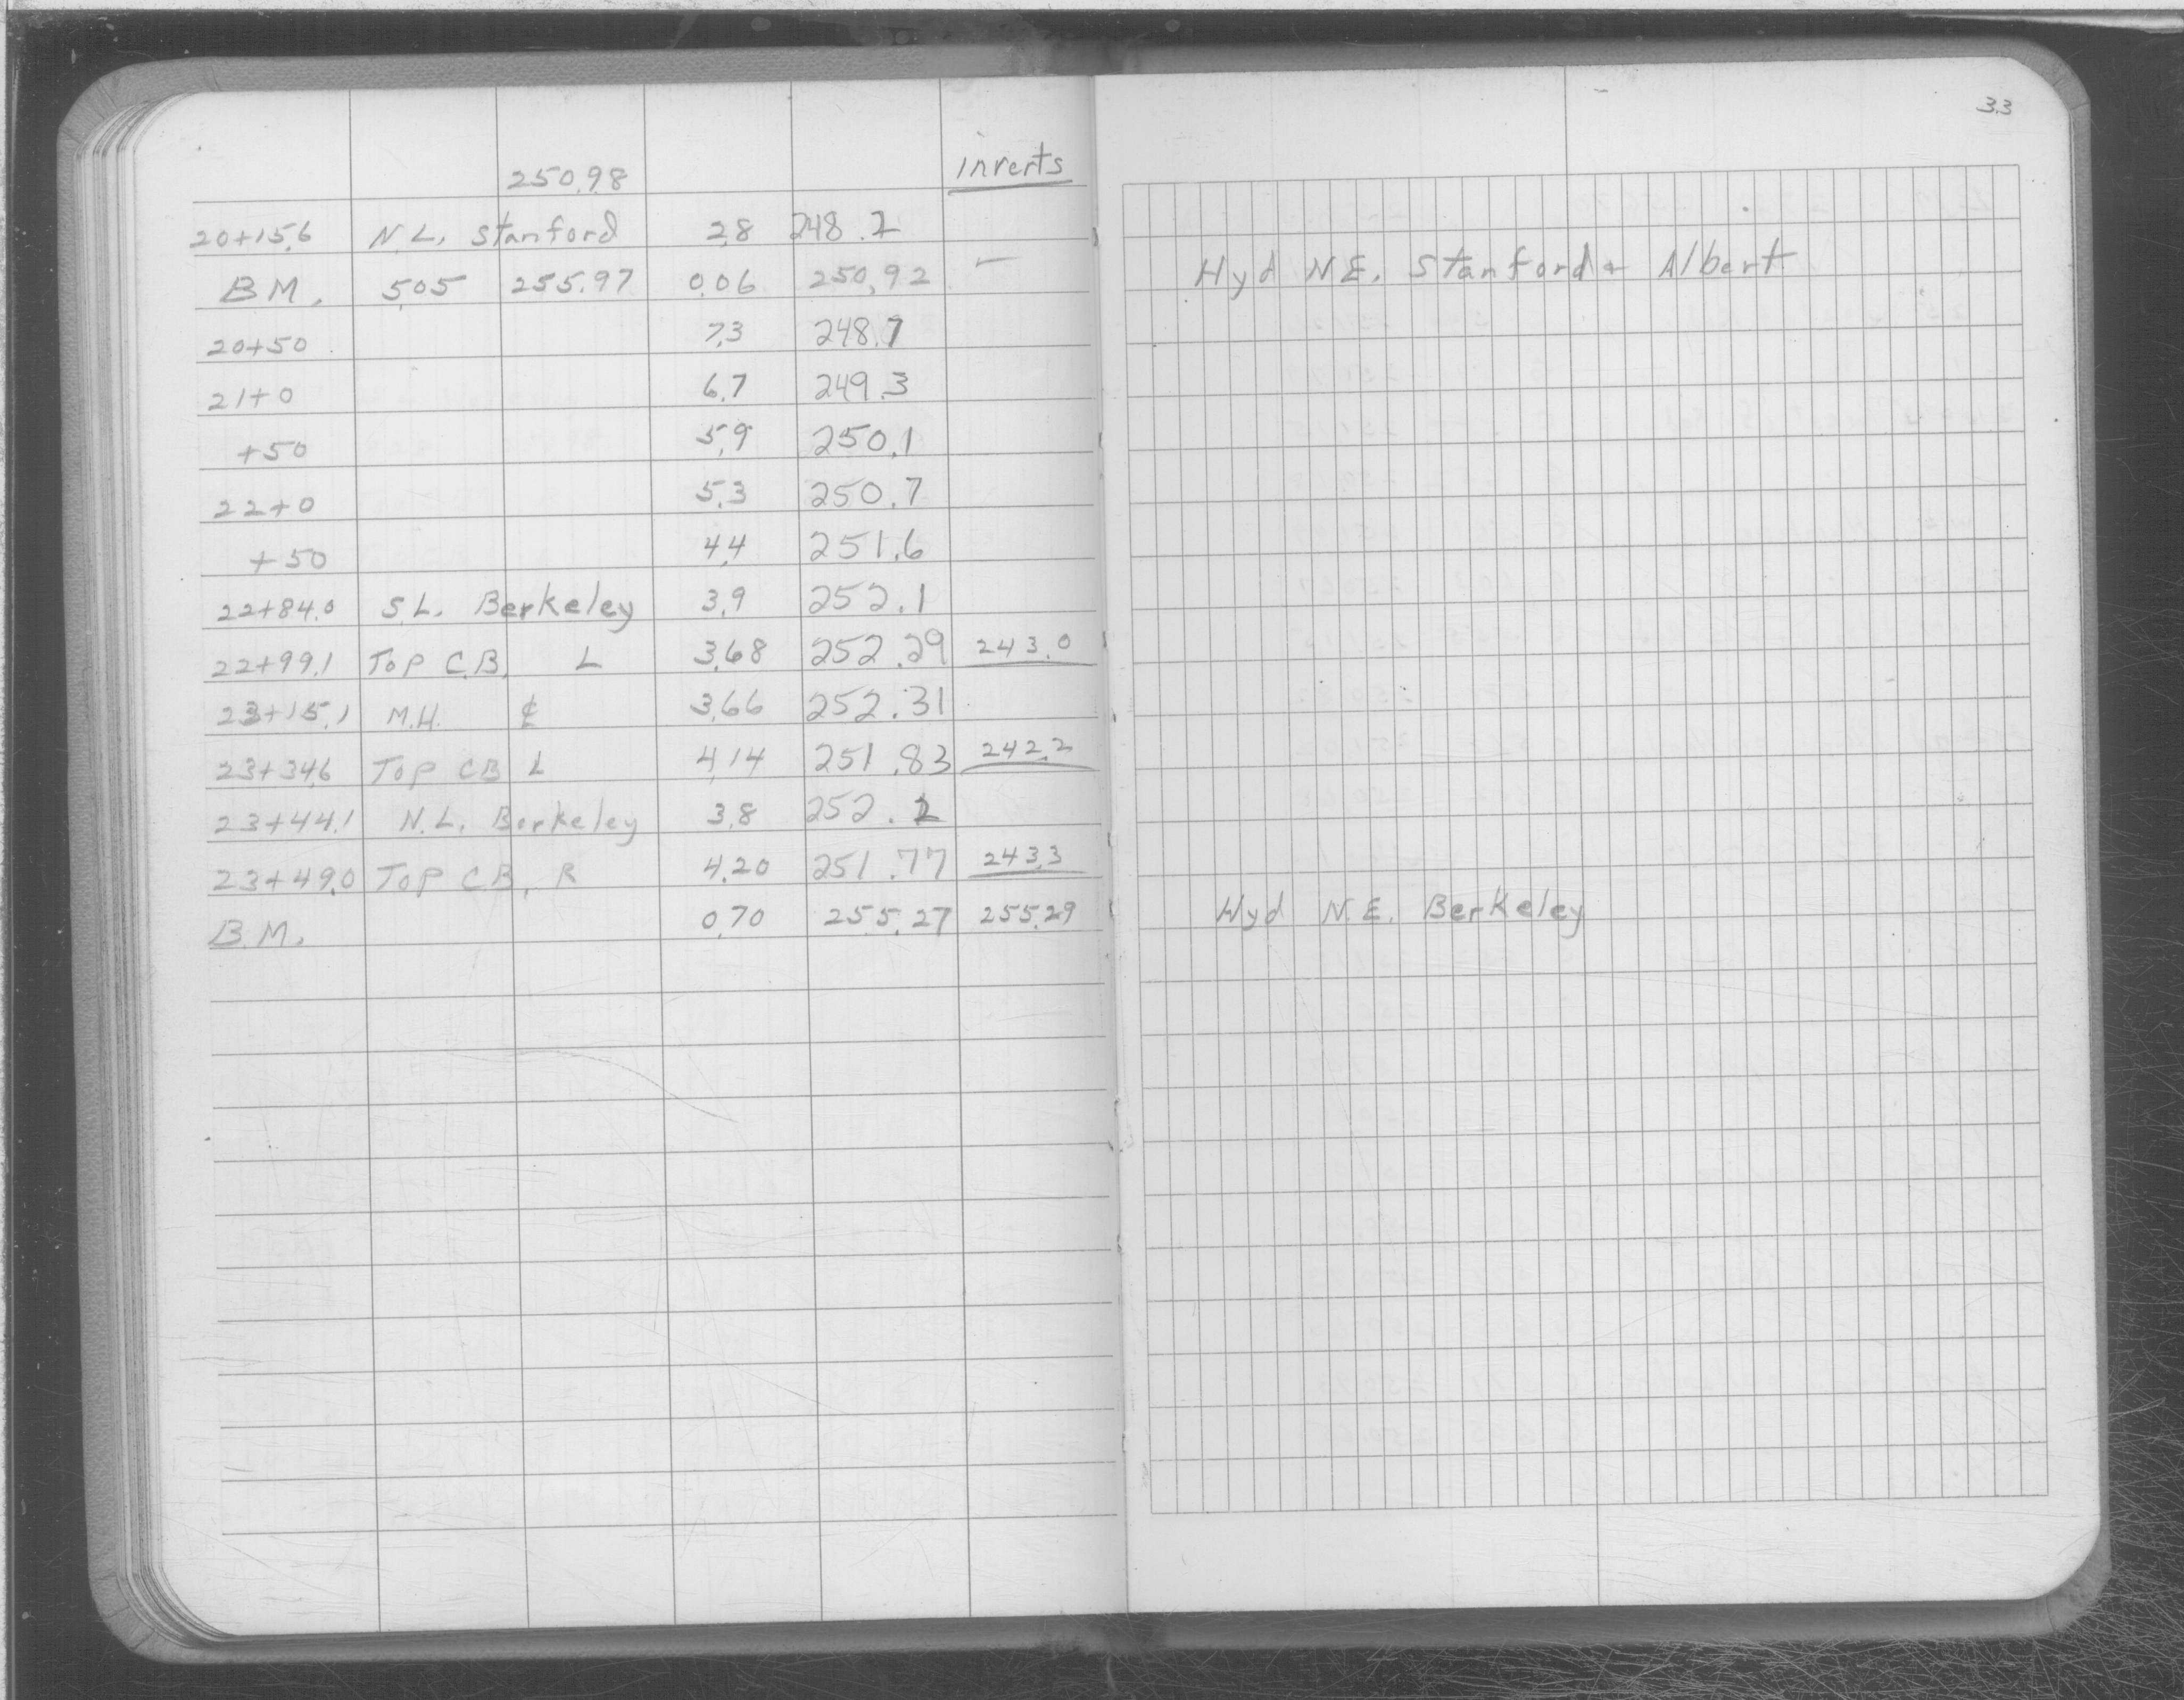 33
250.98 inverts
20+15.6 N.L. Stanford 2.8 248.2
B.M. 5.05 255.97 0.06 250.92 — Hyd N.E. Stanford & Albert
20+50 7.3 248.7
21+0 6.7 249.3
+50 5.9 250.1
22+0 5.3 250.7
+50 4.4 251.6
22+84.0 S.L. Berkeley 3.9 252.1
22+99.1 Top C.B. L 3.68 252.29 243.0
23+15.1 M.H. ℄ 3.66 252.31
23+34.6 Top CB L 4.14 251.83 242.2
23+44.1 N.L. Berkeley 3.8 252.2
23+49.0 Top CB. R 4.20 251.77 243.3
B.M. 0.70 255.27 255.29 Hyd N.E. Berkeley